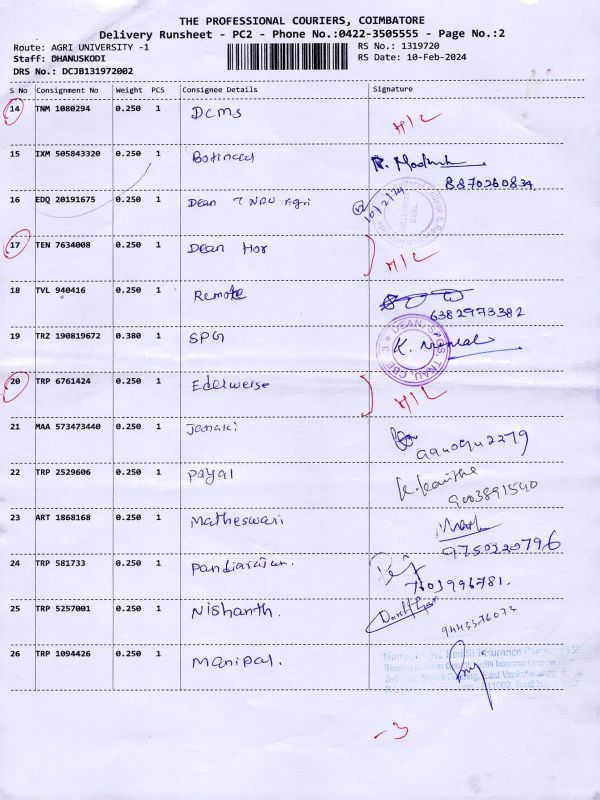 THE PROFESSIONAL COURIERS, COIMBATORE
Delivery Runsheet - PC2 - Phone No.:0422-3505555 - Page No.:2
Route: AGRI UNIVERSITY -1 RS No.: 1319720
Staff: DHANUSKODI RS Date: 10-Feb-2024
DRS No.: DCJB131972002
S No Consignment No Weight PCS Consignee Details Signature
14 TNM 1080294 0.250 1 DCMS H/L
15 IXM 505843320 0.250 1 8870260834
16 EDQ 20191675 0.250 1 Dean TNAU Agri 10/2/24
17 TEN 7634008 0.250 1 Dean Hor H/L
18 TVL 940416 0.250 1 Remote 6382973382
19 TRZ 190819672 0.380 1 SPG DEAN, SPGS, TNAU, CBE 3
20 TRP 6761424 0.250 1 Edelweise H/L
21 MAA 573473440 0.250 1 Janaki
22 TRP 2529606 0.250 1 Payal 9003891540
23 ART 1868168 0.250 1 Matheswari 9750320796
24 TRP 581733 0.250 1 Pandiarajan. 7603996781.
25 TRP 5257001 0.250 1 Nishanth. 9443376073
26 TRP 1094426 0.250 1 Manipal.
-3